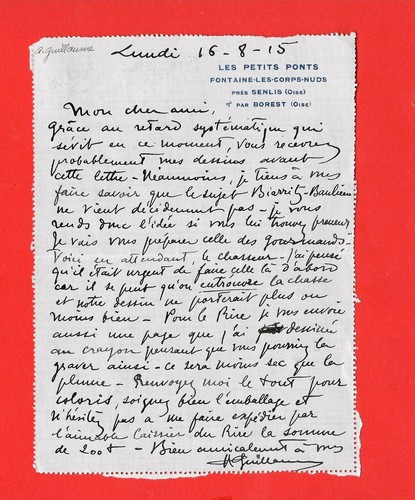 a. guillaume
Lundi 16-8-15
LES PETITS PONTS
FONTAINE-LES-CORPS-NUDS
PRÈS SENLIS (OISE)
PAR BOREST (OISE)
Mon cher ami,
Grâce au retard systématique qui
sévit en ce moment, vous recevrez
probablement mes dessins avant
cette lettre - Néanmoins, je tiens à vous
faire savoir que le sujet Biarritz-Baulieu
ne vient décidément pas - je vous
rends donc l'idée si vous lui trouvez preneur
je vais vous préparer celle des gourmands -
Voici en attendant, le chasseur - J'ai pensé
qu'il était urgent de faire celle là d'abord
car il se peut qu'on entrouvre la chasse
et notre dessin ne porterait plus ou
moins bien - Pour le Rire je vous envoie
aussi une page que j'ai dessinée
au crayon pensant que vous pourriez la
graver ainsi - ce sera moins sec que la
plume - Renvoyez moi le tout pour
coloris, soignez bien l'emballage et
n'hésitez pas à me faire expédier par
l'aimable caissier du Rire la somme
de 200f - Bien amicalement à vous
A Guillaume